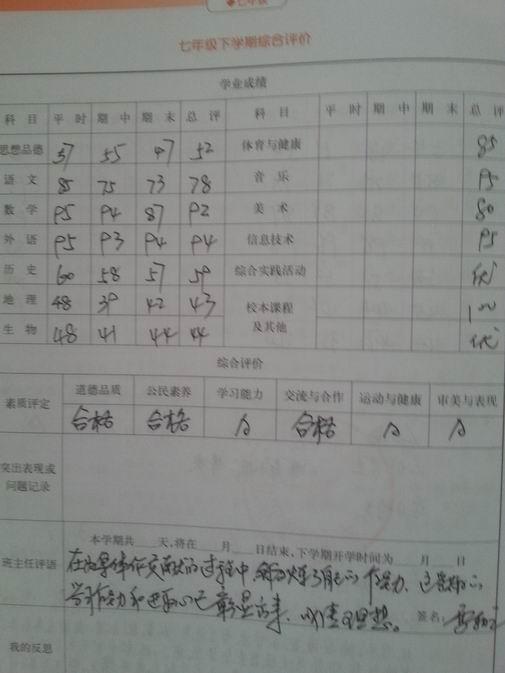 七年级
七年级下学期综合评价
学业成绩
科目 平时 期中 期末 总评 科目 平时 期中 期末 总评
思想品德 57 55 47 52 体育与健康 85
语文 85 75 73 78 音乐 95
数学 95 94 87 92 美术 80
外语 95 93 94 94 信息技术 95
历史 60 58 57 59 综合实践活动 优
地理 48 39 42 43 校本课程及其他 100
生物 48 41 44 44 优
综合评价
素质评定 道德品质 公民素养 学习能力 交流与合作 运动与健康 审美与表现
合格 合格 A 合格 A A
突出表现或
问题记录
本学期共 天,将在 月 日结束,下学期开学时间为 月 日
班主任评语 在为集体作贡献的过程中
学习 成绩理想。 签名:
我的反思